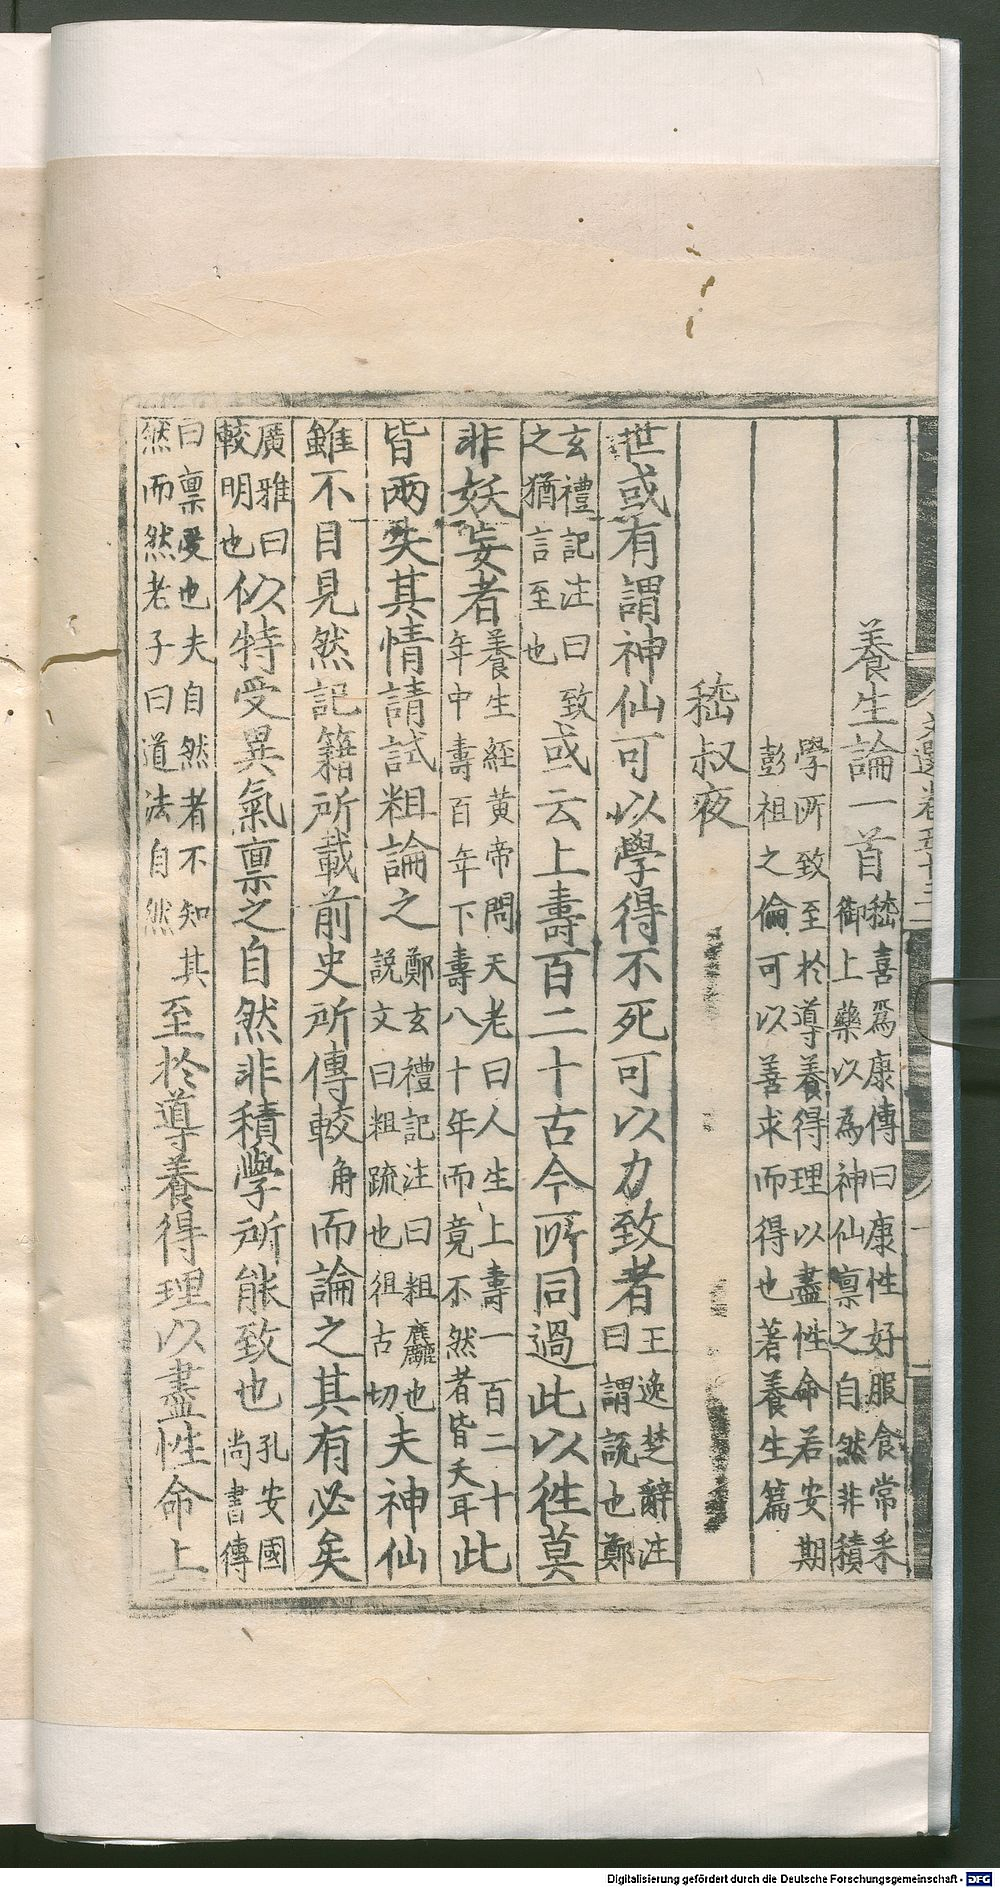 文選卷五十三
養生論一首 嵇喜爲康傳曰康性好服食常采御上藥以為神仙稟之自然非積
學所致至於導養得理以盡性命若安期彭祖之倫可以善求而得也著養生篇
嵇叔夜
世或有謂神仙可以學得不死可以力致者 王逸楚辭注曰謂說也鄭
玄禮記注曰致之猶言至也 或云上壽百二十古今所同過此以徃莫
非妖妄者 養生經黄帝問天老曰人生上壽一百二十年中壽百年下壽八十年而竟不然者皆夭耳 此
皆兩失其情請試粗論之 鄭玄禮記注曰粗麤也說文曰粗疏也徂古切 夫神仙
雖不目見然記籍所載前史所傳較 角 而論之其有必矣
廣雅曰較明也 似特受異氣禀之自然非積學所能致也 孔安國尚書傳
曰禀受也夫自然者不知其然而然老子曰道法自然 至於導養得理以盡性命上
Digitalisierung gefördert durch die Deutsche Forschungsgemeinschaft - DFG